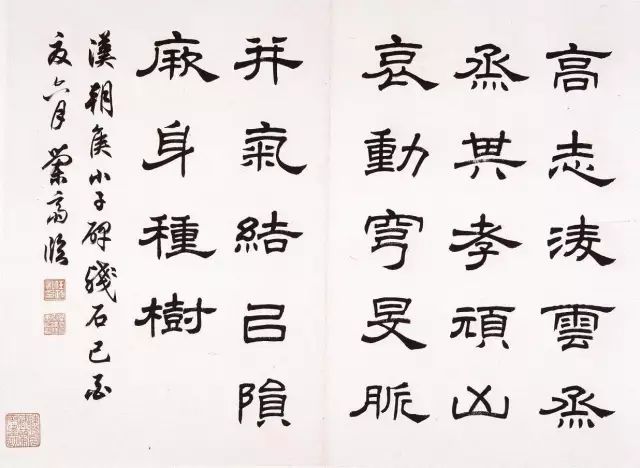 高志淩雲烝
烝其孝頑凶
哀動穹旻脈
并氣結㠯隕
厥身種樹
漢朝侯小子碑殘石己酉
夏六月蘭齋臨